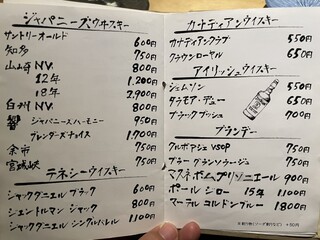 ジャパニーズ・ウヰスキー
サントリーオールド 600円
知多 750円
山崎 N.V. 800円
12年 1,200円
18年 2,900円
白州 N.V. 800円
響 ジャパニーズハーモニー 950円
ブレンダーズチョイス 1,700円
余市 750円
宮城峡 750円
テネシーウイスキー
ジャックダニエル ブラック 600円
ジェントルマン ジャック 800円
ジャックダニエル シングルバレル 1,100円
カナディアンウイスキー
カナディアンクラブ 550円
クラウンローヤル 650円
アイリッシュウイスキー
ジェムソン 550円
タラモアデュー 650円
ブラックブッシュ 700円
ブランデー
クルボアジェ VSOP 750円
ブラー グランソラージュ 750円
マグネ ボム プリゾニエール 900円
ポール ジロー 15年 1100円
マーテル コルドンブルー 1800円
+50円